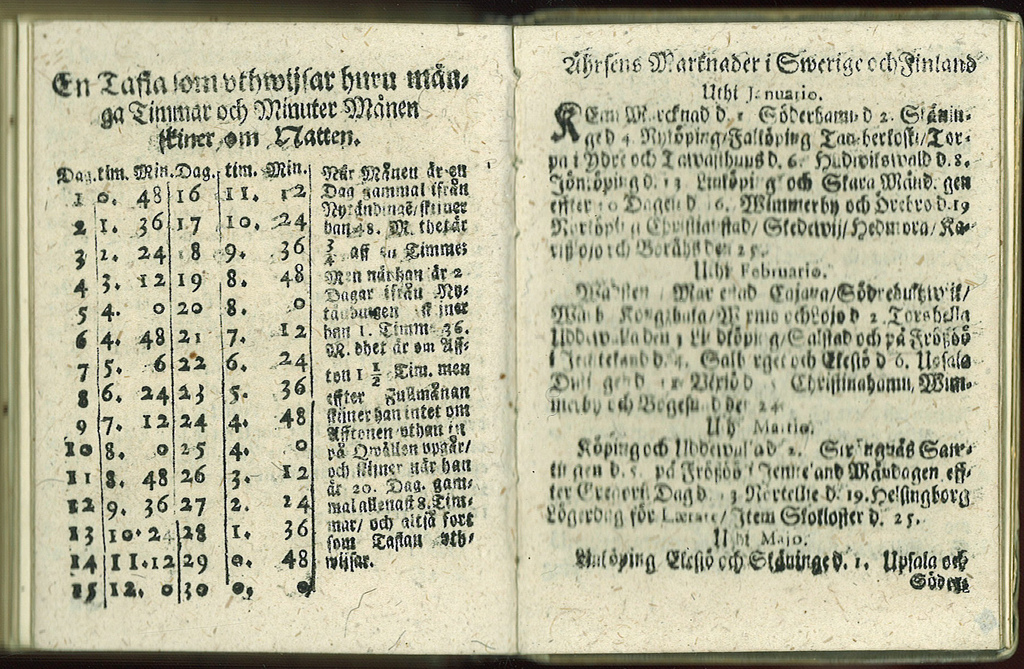 En Tafla som vthwijsar huru mån-
ga Timmar och Minuter Månen
skiner om Natten.
Dag. tim. Min. Dag. tim. Min.
1 0. 48 16 11. 12
2 1. 36 17 10. 24
3 2. 24 18 9. 36
4 3. 12 19 8. 48
5 4. 0 20 8. 0
6 4. 48 21 7. 12
7 5. 6 22 6. 24
8 6. 24 23 5. 36
9 7. 12 24 4. 48
10 8. 0 25 4. 0
11 8. 48 26 3. 12
12 9. 36 27 2. 24
13 10. 24 28 1. 36
14 11. 12 29 0. 48
15 12. 0 30 0. 0
När Månen är en
Dag gammal ifrån
Nytändingë/skiner
han 48. M. thet är
3/4 aff en Timme:
Men när han är 2
Dagar ifrån Ny-
tändningen skiner
han 1. Timm 36.
M. dhet är om Aff-
ton 1 1/2 Tim. men
effter Fullmånan
skiner han intet om
Afftonen vthan
på Qwällen vpgår/
och skiner när han
är 20. Dag. gam-
mal allenast 8. Tim-
mar/ och altså fort
som Taflan vth-
wijsar.
Åhrsens Marknader i Swerige och Finland
Uthi Januario.
REm Marcknad d. Söderhamn d 2. Skänin-
ge d 4. Nyköping/Falköping Tawberkoski/Tor-
pa i Ydre och Tawasthuus d. 6. Hudwikswald d. 8.
Jönköping d. 13 Linköping och Skara Månd. gen
effter 20 Dagen d 16. Wimmerby och Örebro d. 19
Norköping Christianstad/ Skedewij/Hedmora/Ka-
och Boråhs den 25.
Uthi Februario.
Wadsten Marcnad Cajana/Södre
Kongzbaka/ och Lojo d 2. Torshella
Uddewalla den 3 Lidköping/Salstad och på Frößöö
i d. 4. Ekesiö d 6. Upsala
Christinahamn, Wim-
merby och Bogesund den 24.
Uthi Martio.
Köping och Uddewal ad 2. Strengnäs Sant-
d. 5. på Frößöö i Jemteland Måndagen eff-
ter Gregorii Dag d. 13 Nortellie d. 19. Helsingborg
Lögerdag för Laetare/ Item Skokloster d. 25.
Uthi Majo.
Linköping Ekesiö och Skäninge d. 1. Upsala och
Söder-